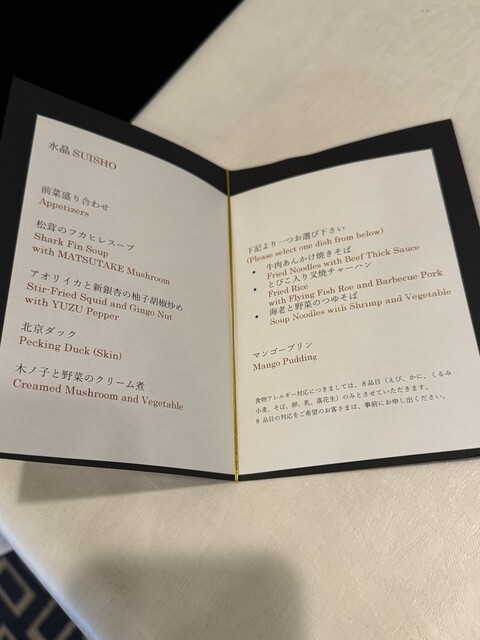 水晶 SUISHO
前菜盛り合わせ
Appetizers
松茸のフカヒレスープ
Shark Fin Soup
with MATSUTAKE Mushroom
アオリイカと新銀杏の柚子胡椒炒め
Stir-Fried Squid and Gingo Nut
with YUZU Pepper
北京ダック
Pecking Duck (Skin)
木ノ子と野菜のクリーム煮
Creamed Mushroom and Vegetable
下記より一つお選び下さい
(Please select one dish from below)
• 牛肉あんかけ焼きそば
Fried Noodles with Beef Thick Sauce
• とびこ入り叉焼チャーハン
Fried Rice
with Flying Fish Roe and Barbecue Pork
• 海老と野菜のつゆそば
Soup Noodles with Shrimp and Vegetable
マンゴープリン
Mango Pudding
食物アレルギー対応につきましては、8品目（えび、かに、くるみ
小麦、そば、卵、乳、落花生）のみとさせていただきます。
8品目の対応をご希望のお客さまは、事前にお申し出ください。